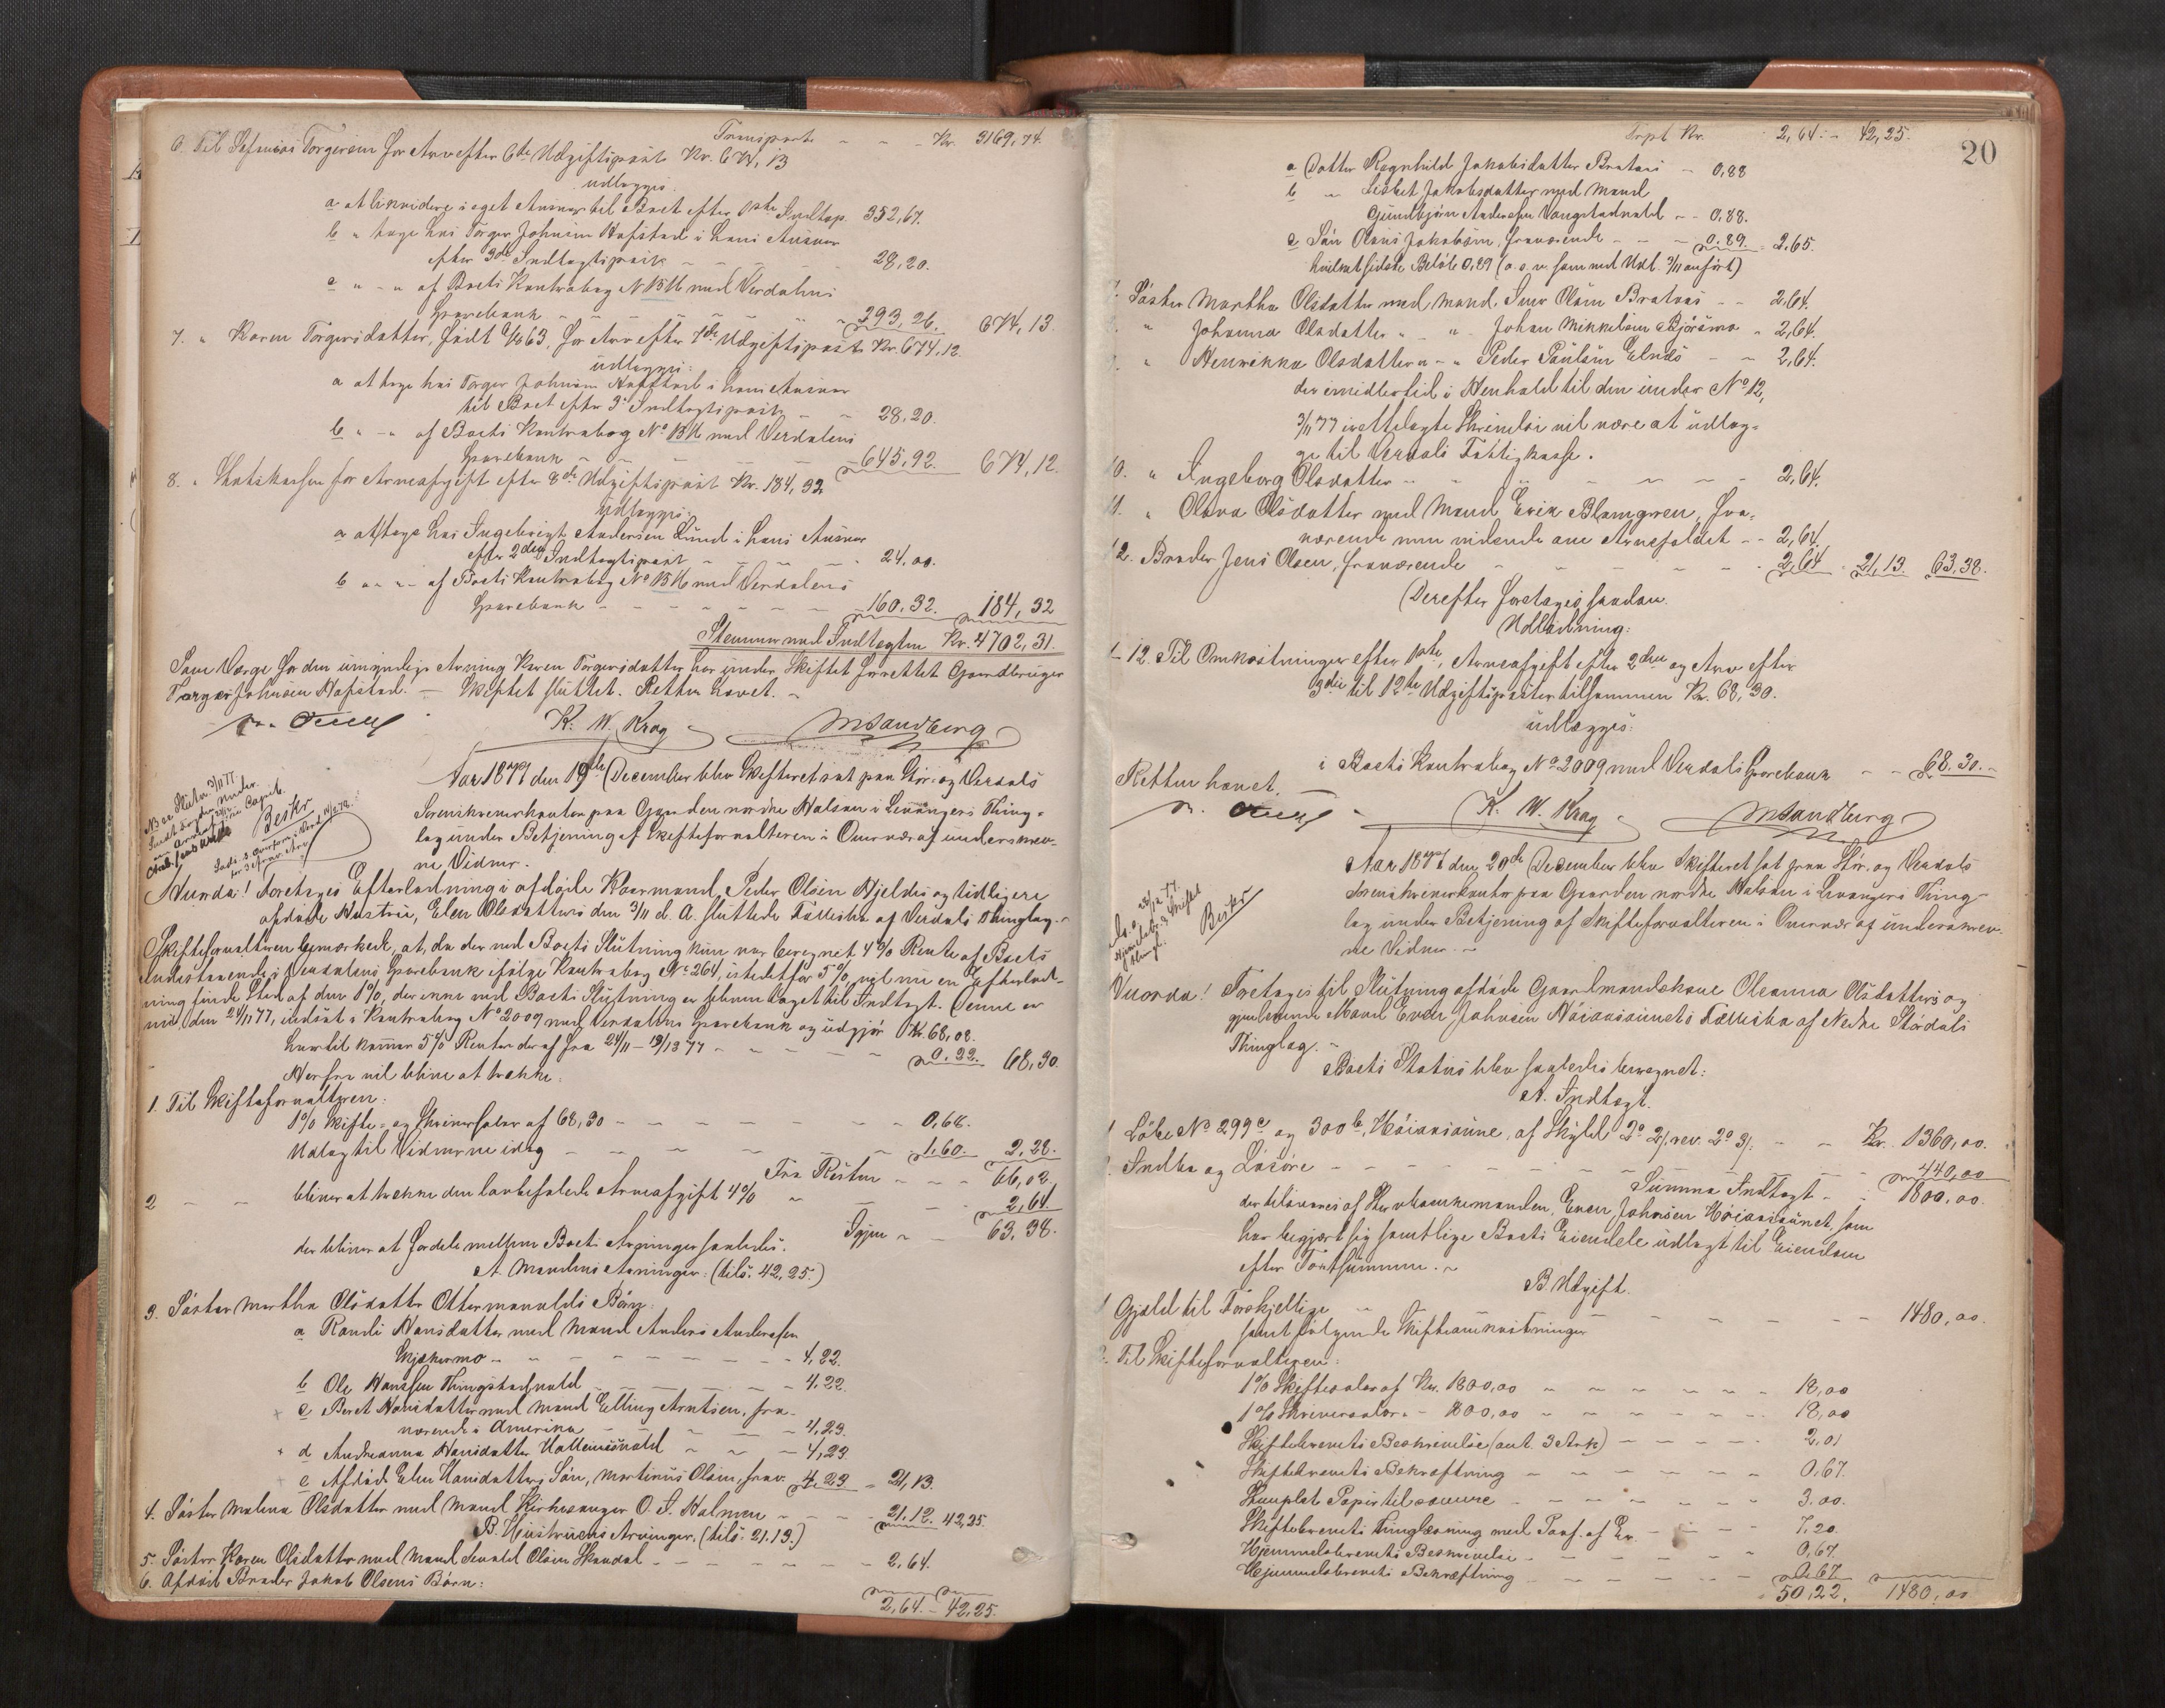 Transport - - Kr. 3169,74.
6. Til Torgersen for Arv efter 6te Udgiftspost Kr. 674,13
udlægges.
a at likvidere i eget Ansvar til Boet efter 1ste Indtgp. 352,67.
b " tage hos Torger Johnsen Hofstad i hans Ansvar
efter 3die Indtægtspost - - - 28,20.
c " - " af Boets Kontrabog N med Verdalens
Sparebank - - - 293,26. 674,13.
7. " Karen Torgersdatter, født 63, for Arv efter 7de Udgiftspost Kr. 674.12
udlægges:
a at tage hos Torger Johnsen Hofstad i hans Ansvar
til Boet efter 3' Indtægtspost - - 28,20.
b " - " af Boets Kontrabog No med Verdalens
Sparebank - - - 645,92. 674,12.
8. " Statskassen for Arveafgift efter 8de Udgiftspost Kr. 184,32
udlægges:
a at tage hos Ingebrigt Andersen Lund i hans Ansvar
efter 2den Indtægtspost - - - 24,00.
b " - " - af Boets Kontrabog No med Verdalens
Sparebank - - - 160.32. 184,32
Stemmer med Indtægten Kr. 4702,31.
Som Værge for den umyndige Arving Karen Torgersdatter har under Skiftet fungeret Gaardbruger
Torger Johnsen Hofstad. - Skiftet sluttet. Retten hævet. -
K. W. Krog MSandberg
Aar 1877 den 19de December blev Skifteret sat paa Stør- og Verdals
Sorenskriverkontor paa Gaarden nordre Halsan i Levangers Thing-
lag under Betjening af Skifteforvalteren i Overvær af underskrev-
ne Vidner.
NB Skiftn. 3/11 77.
Beskr
Hvorda! Foretages Efterlodning i afdøde Kaarmand, Peder Olsen Hjeldes og tidligere
afdøde Hustru, Elen Olsdatters den 3/11 d. A. sluttede Fællesbo af Verdals Thinglag. -
Skifteforvalteren bemærkede, at, da der ved Boets Slutning kun var beregnet 4% Rente af Boets
Indestaaende i Verdalens Sparebank ifølge Kontrabog No 264, istedetfor 5%, vil nu en Efterlod-
ning finde Sted af den 1%, der ikke ved Boets Slutning er bleven taget til Indtægt. Denne er
nu, den 24/11 77, indsat i Kontrabog No 2009 med Verdalens Sparebank og udgjør Kr. 68,08.
hvortil kommer 5% Renter deraf fra 24/11 - 19/12 77 - - - 0.22. 68,30.
Herfra vil blive at trække:
1. Til Skifteforvalteren:
1% Skifte- og Skriversalar af 68,30 - - - 0,68.
Udlæg til Vidnerne idag - - - 1.60. 2,28.
Tra Resten - - - 66,02
2 - - bliver at trække den lovbefalede Arveafgift 4% " - - 2,64
Igjen " - 63,38.
der bliver at fordele mellem Boets Arvinger saaledes.
A. Mandens Arvinger: (tils. 42,25.)
3. Søster Martha Olsdatter Ottermovalds Børn:
a Randi Hansdatter med Mand Anders Andersen
Skjækermo - - - 4,22.
b Ole Hanssen Thingstadvald - - - 4,22.
c Beret Hansdatter med Mand Elling Arntsen, fra-
værende i Amerika - - - 4,23.
d Andreanna Hansdatter - - - 4,23
e Afdøde Elen Hansdatters Søn, Martinus Olsen, frav. 4,23 = 21,13.
4. Søster Malena Olsdatter med Mand Kirkesanger O. S. Halmen - - - 21.12. 42,25.
B. Hustruens Arvinger. (tils. 21.13.)
5. Søster Karen Olsdatter med Mand Sevald Olsen Skavdal - - - 2,64.
6. Afdøde Broder Jakob Olsens Børn:
2,64. - 42,25.
20
Trspt Kr. 2,64: - 42,25.
a Datter Ragnhild Jakobsdatter Brataas - 0,88
b " Lisbet Jakobsdatter med Mand
Gundbjørn Andersen Vangstadvald - - 0,88.
c Søn Olaus Jakobsen, fraværende - - - 0.89. = 2,65.
hvilket sidste Beløb 0,89 (o. s. v. som ved Udl. 3/11 anført)
7. Søster Martha Olsdatter med Mand Olsen Brataas - - 2,64.
" Johanna Olsdatter " " Johan Mikkelsen Bjørsmo - 2,64.
" Henrikka Olsdatter " - " Peder Paulsen Elnes - - 2,64.
der imidlertid i Henhold til den under No 12,
3/11 77 irettelagte Skrivelse vil være at udlæg-
ge til Verdals Fattigkasse.
10. " Ingeborg Olsdatter - - - 2,64.
11. " Olava Olsdatter med Mand Erik Blomgren, fra-
værende men vidende om Arvefaldet - - 2,64.
12. Broder Jens Olsen, fraværende - - - 2,64 = 21,13. 63,38.
Derefter foretages saadan
Udlodning:
1-12. Til Omkostninger efter 1ste, Arveafgift efter 2den og Arv efter
3die til 12te Udgiftsposter tilsammen Kr. 68,30.
udlægges:
i Boets Kontrabog No 2009 med Verdals Sparebank - - 68.30. -
Retten hævet.
K. W. Krog MSandberg
Aar 1877 den 20de December blev Skifteret sat paa Stør- og Verdals
Sorenskriverkontor paa Gaarden nordre Halsan i Levangers Thing-
lag under Betjening af Skifteforvalteren i Overvær af underskrev-
ne Vidner. -
Beskr
Hvorda! Foretages til Slutning afdøde Gaardmandskone Oleanna Olsdatters og
gjenlevende Mand Even Johnsen Høiaasaunets Fællesbo af Nedre Stjørdals
Thinglag. -
Boets Status blev saaledes beregnet:
A. Indtægt.
1 Løbe No 299a og 300b, Høiaasaune, af Skyld 2o 2/. rev. 2o 3/. - - Kr. 1360,00.
2. Indbo og Løsøre - - - 440,00
Summa Indtægt - - 1800,00.
der tilsvares af Stervboenkemanden, Even Johnsen Høiaasaunet, som
har begjært sig samtlige Boets Eiendele udlagt til Eiendom
efter Taxtsummen. -
B. Udgift.
1 Gjæld til Forskjellige - - - 1480,00.
samt følgende Skifteomkostninger
2. Til Skifteforvalteren:
1% Skiftesalar af Kr. 1800,00 - - - 18,00
1% Skriversalar " - 1800,00 - - - 18,00
Skiftebrevets Beskrivelse (ant. 3 Ark) - - - 2,01
Skiftebrevets Bekræftning - - - 0,67.
Stemplet Papir til samme - - - 3.00.
Skiftebrevets Thinglæsning med - - - 7,20.
Hjemmelsbrevets Beskrivelse - - - 0,67.
Hjemmelsbrevets Bekræftning - - - 0,67
50,22. 1480,00